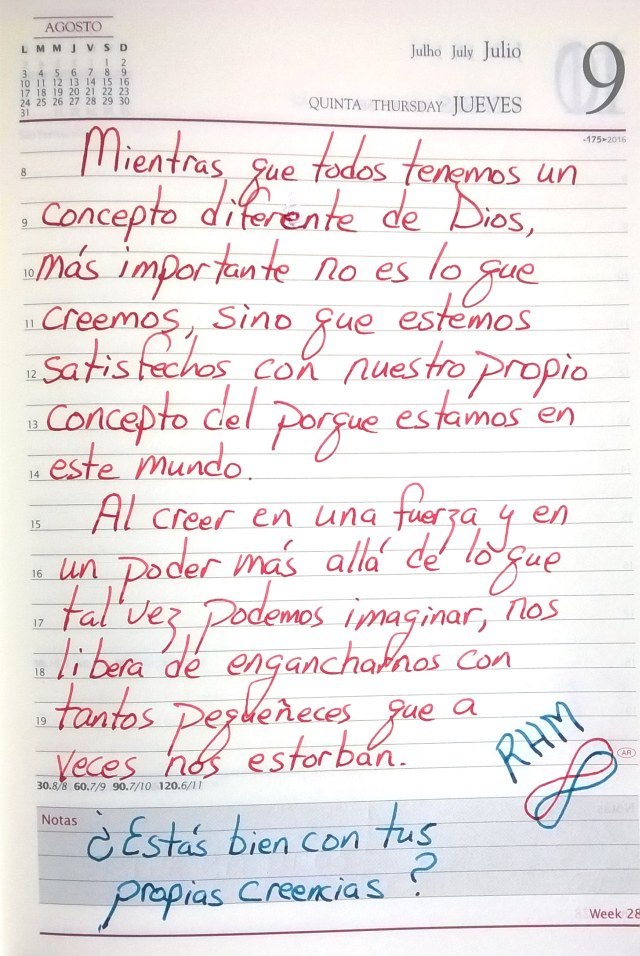 AGOSTO
L M M J V S D
1 2
3 4 5 6 7 8 9
10 11 12 13 14 15 16
17 18 19 20 21 22 23
24 25 26 27 28 29 30
31
Julho July Julio
9
QUINTA THURSDAY JUEVES
-175>2016
8 Mientras que todos tenemos un
9 concepto diferente de Dios,
10 más importante no es lo que
11 creemos, sino que estemos
12 satisfechos con nuestro propio
13 concepto del porque estamos en
14 este mundo.
15 Al creer en una fuerza y en
16 un poder más allá de lo que
17 tal vez podemos imaginar, nos
18 libera de engancharnos con
19 tantos pequeñeces que a
veces nos estorban.
RHM
AR
30.8/8 60.7/9 90.7/10 120.6/11
Notas
¿Estás bien con tus
propias creencias?
Week 28